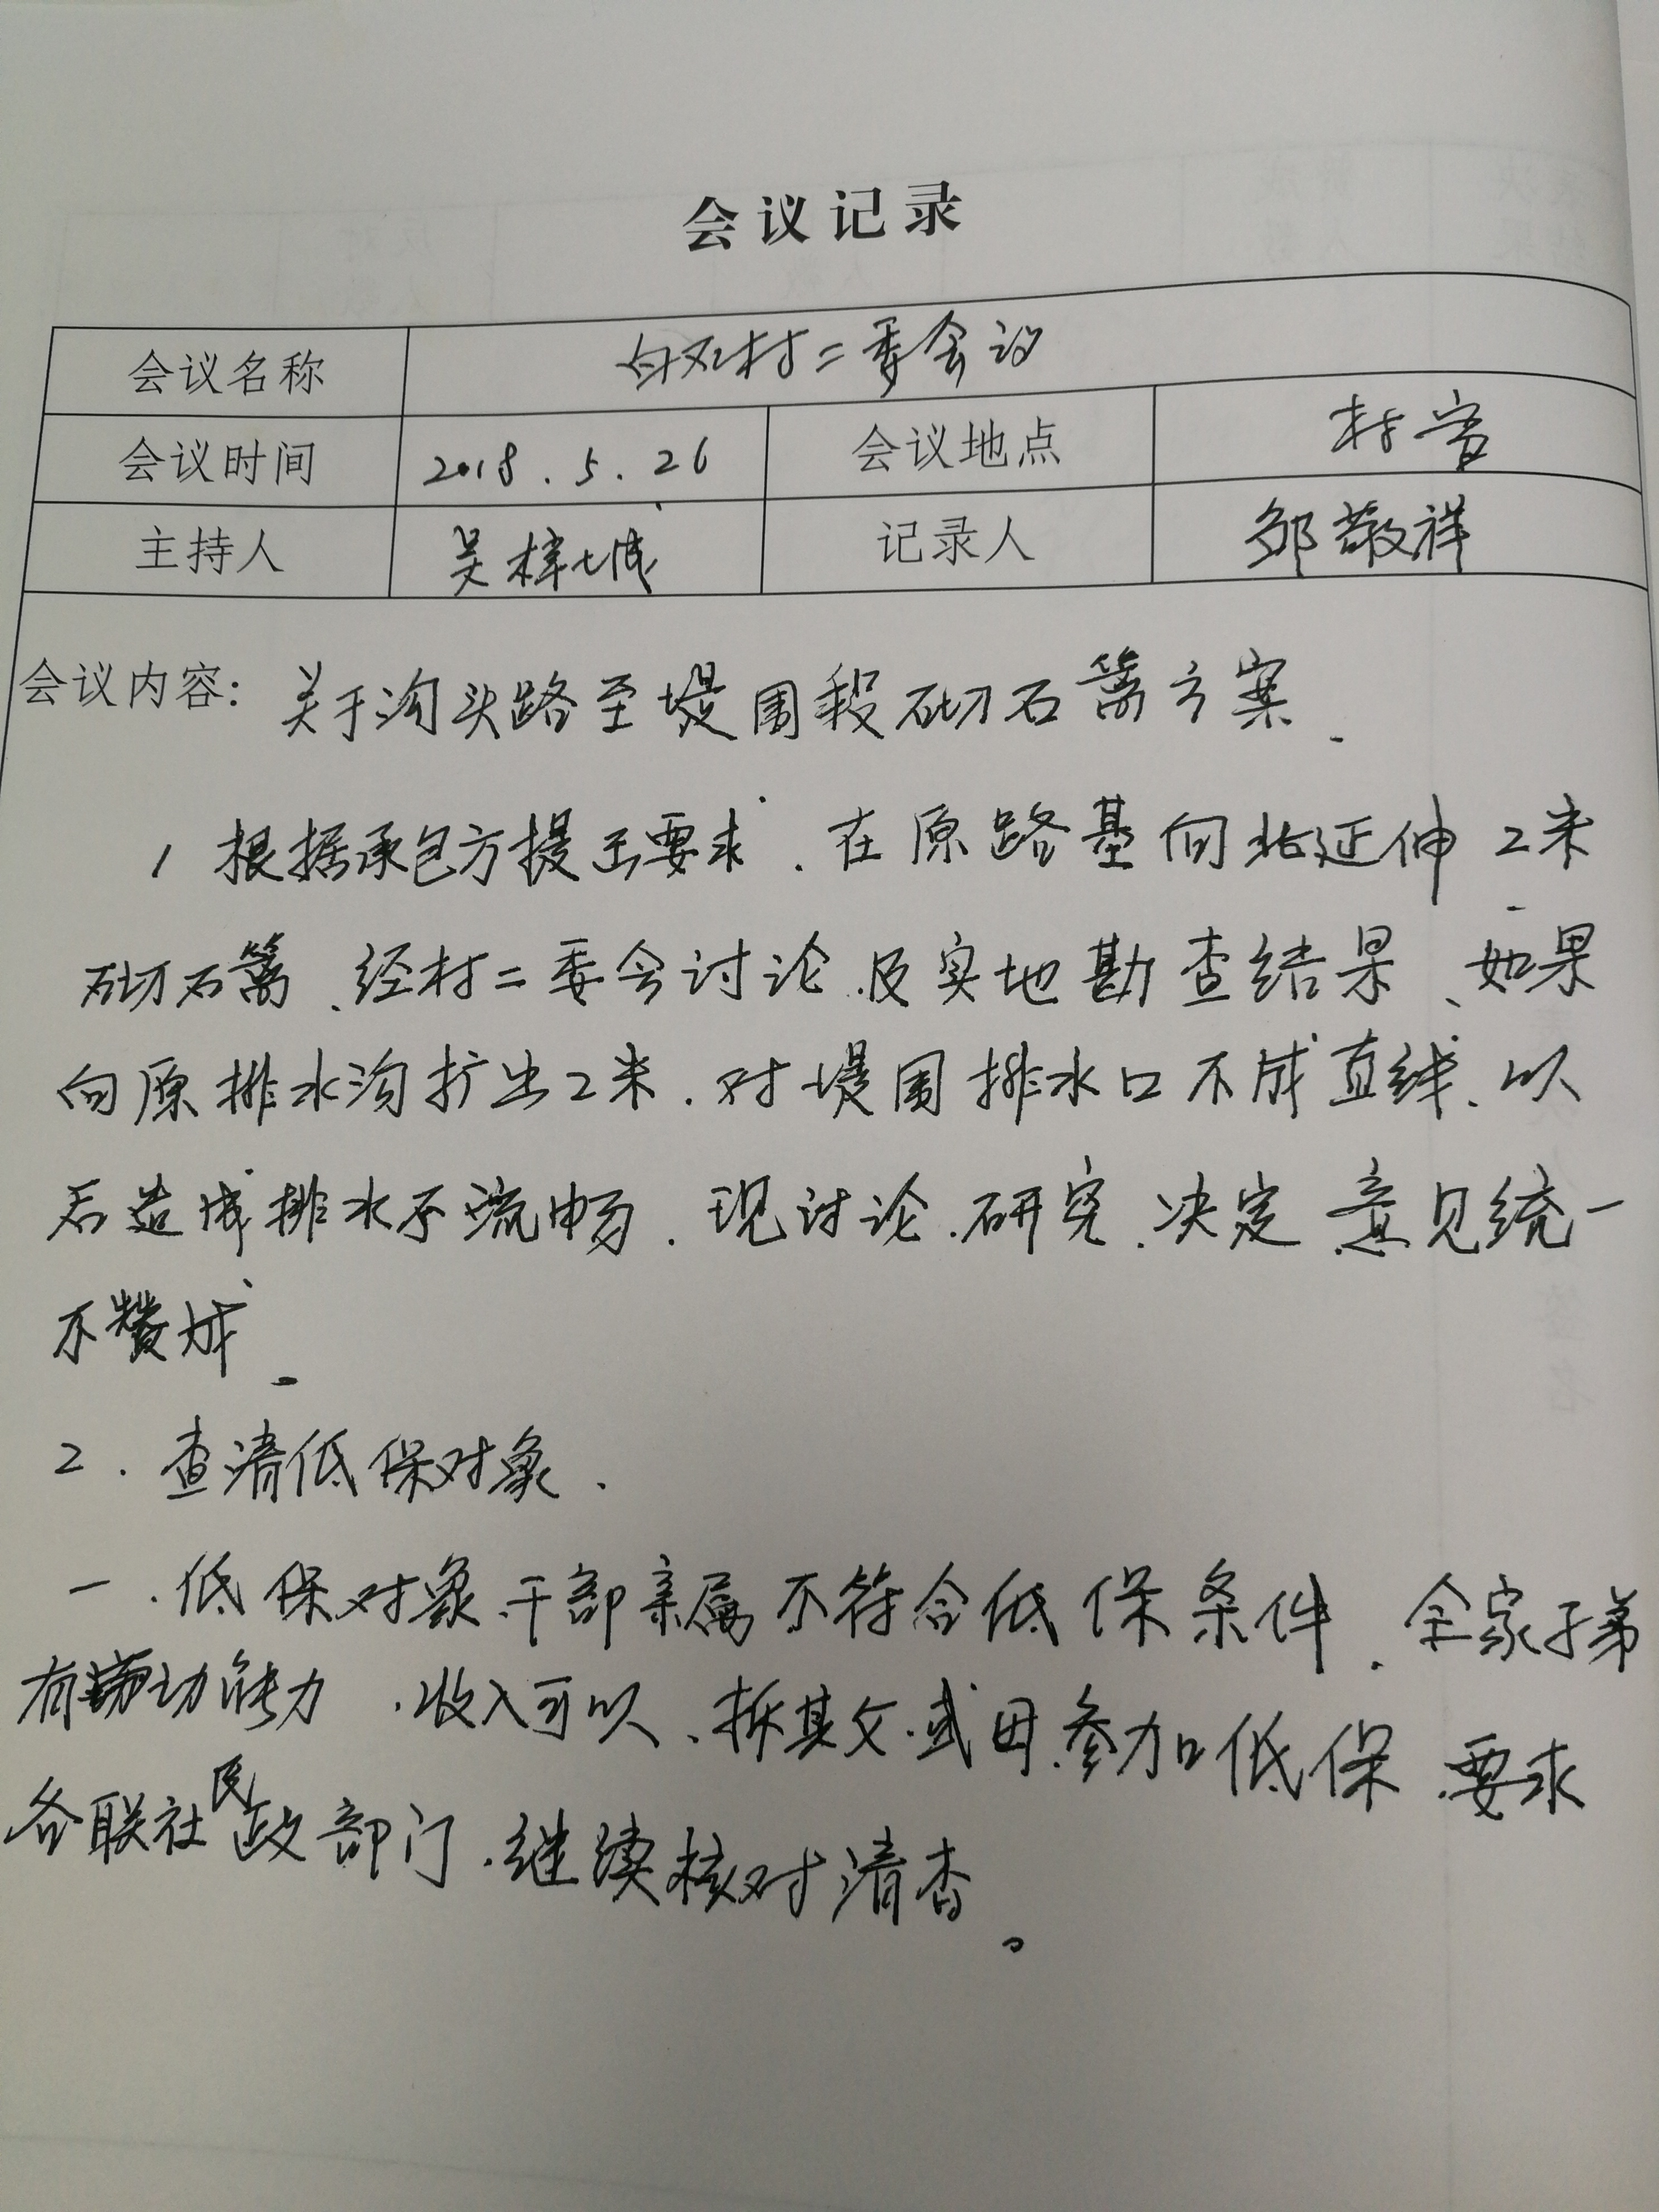 会议记录
会议名称 白石村二委会议
会议时间 2018.5.26 会议地点 村官
主持人 吴梓城 记录人 邹敬祥
会议内容: 关于沟头路至堤围段砌石篱方案.
1 根据承包方提出要求.在原路基向北延伸2米
砌石篱、经村二委会讨论.及实地勘查结果、如果
向原排水沟扩出2米.对堤围排水口不成直线、以
后造成排水不流畅.现讨论.研究.决定.意见统一
不赞成.
2.查清低保对象.
一.低保对象.干部亲属不符合低保条件.全家子弟
有劳动能力.收入可以、拆其父.或母.参加低保.要求
各联社民政部门.继续核对清查。